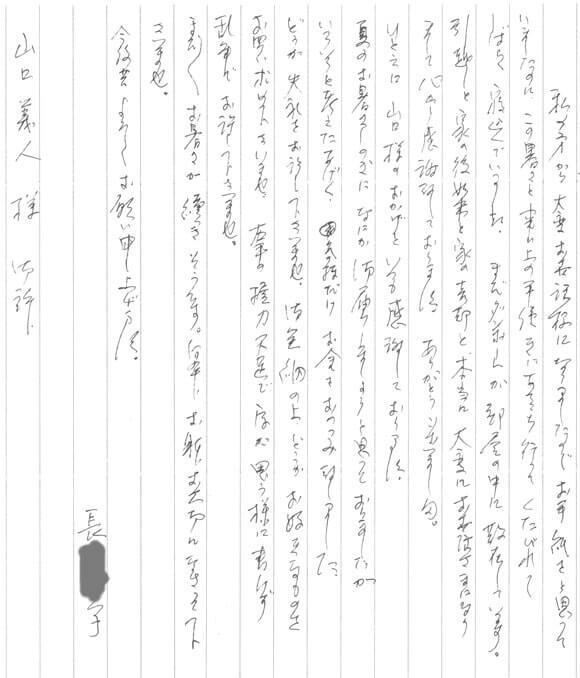 私の方から大変お世話様になりましたのでお手紙をと思って
いましたのにこの暑さと東山の手伝きにあちち行ってくたびれて
ばたり寝込んでいました。まだダンボールが部屋の中に散在しています。
引越しと家の後始末と家の売却と本当に大変にお世話さまになり
そして心から感謝申しております。ありがとうございます。
ひとえに山口様のおかげといつも感謝しております。
夏のお暑さの中になにかお届けしようと思っておりましたが
いろいろと考えたあげく、お金をおつつみ致しました
どうか失礼をお許し下さいませ。御笑納の上、どうかお好きなものを
お買い求め下さいませ。右手の握力不足で字が思う様に書けず
乱筆でお許し下さいませ。
まだまだお暑さが続きそうです。何卒お身お大切になさって下
さいませ。
今後共よろしくお願い申し上げます。
長 子
山口義人様 御許に